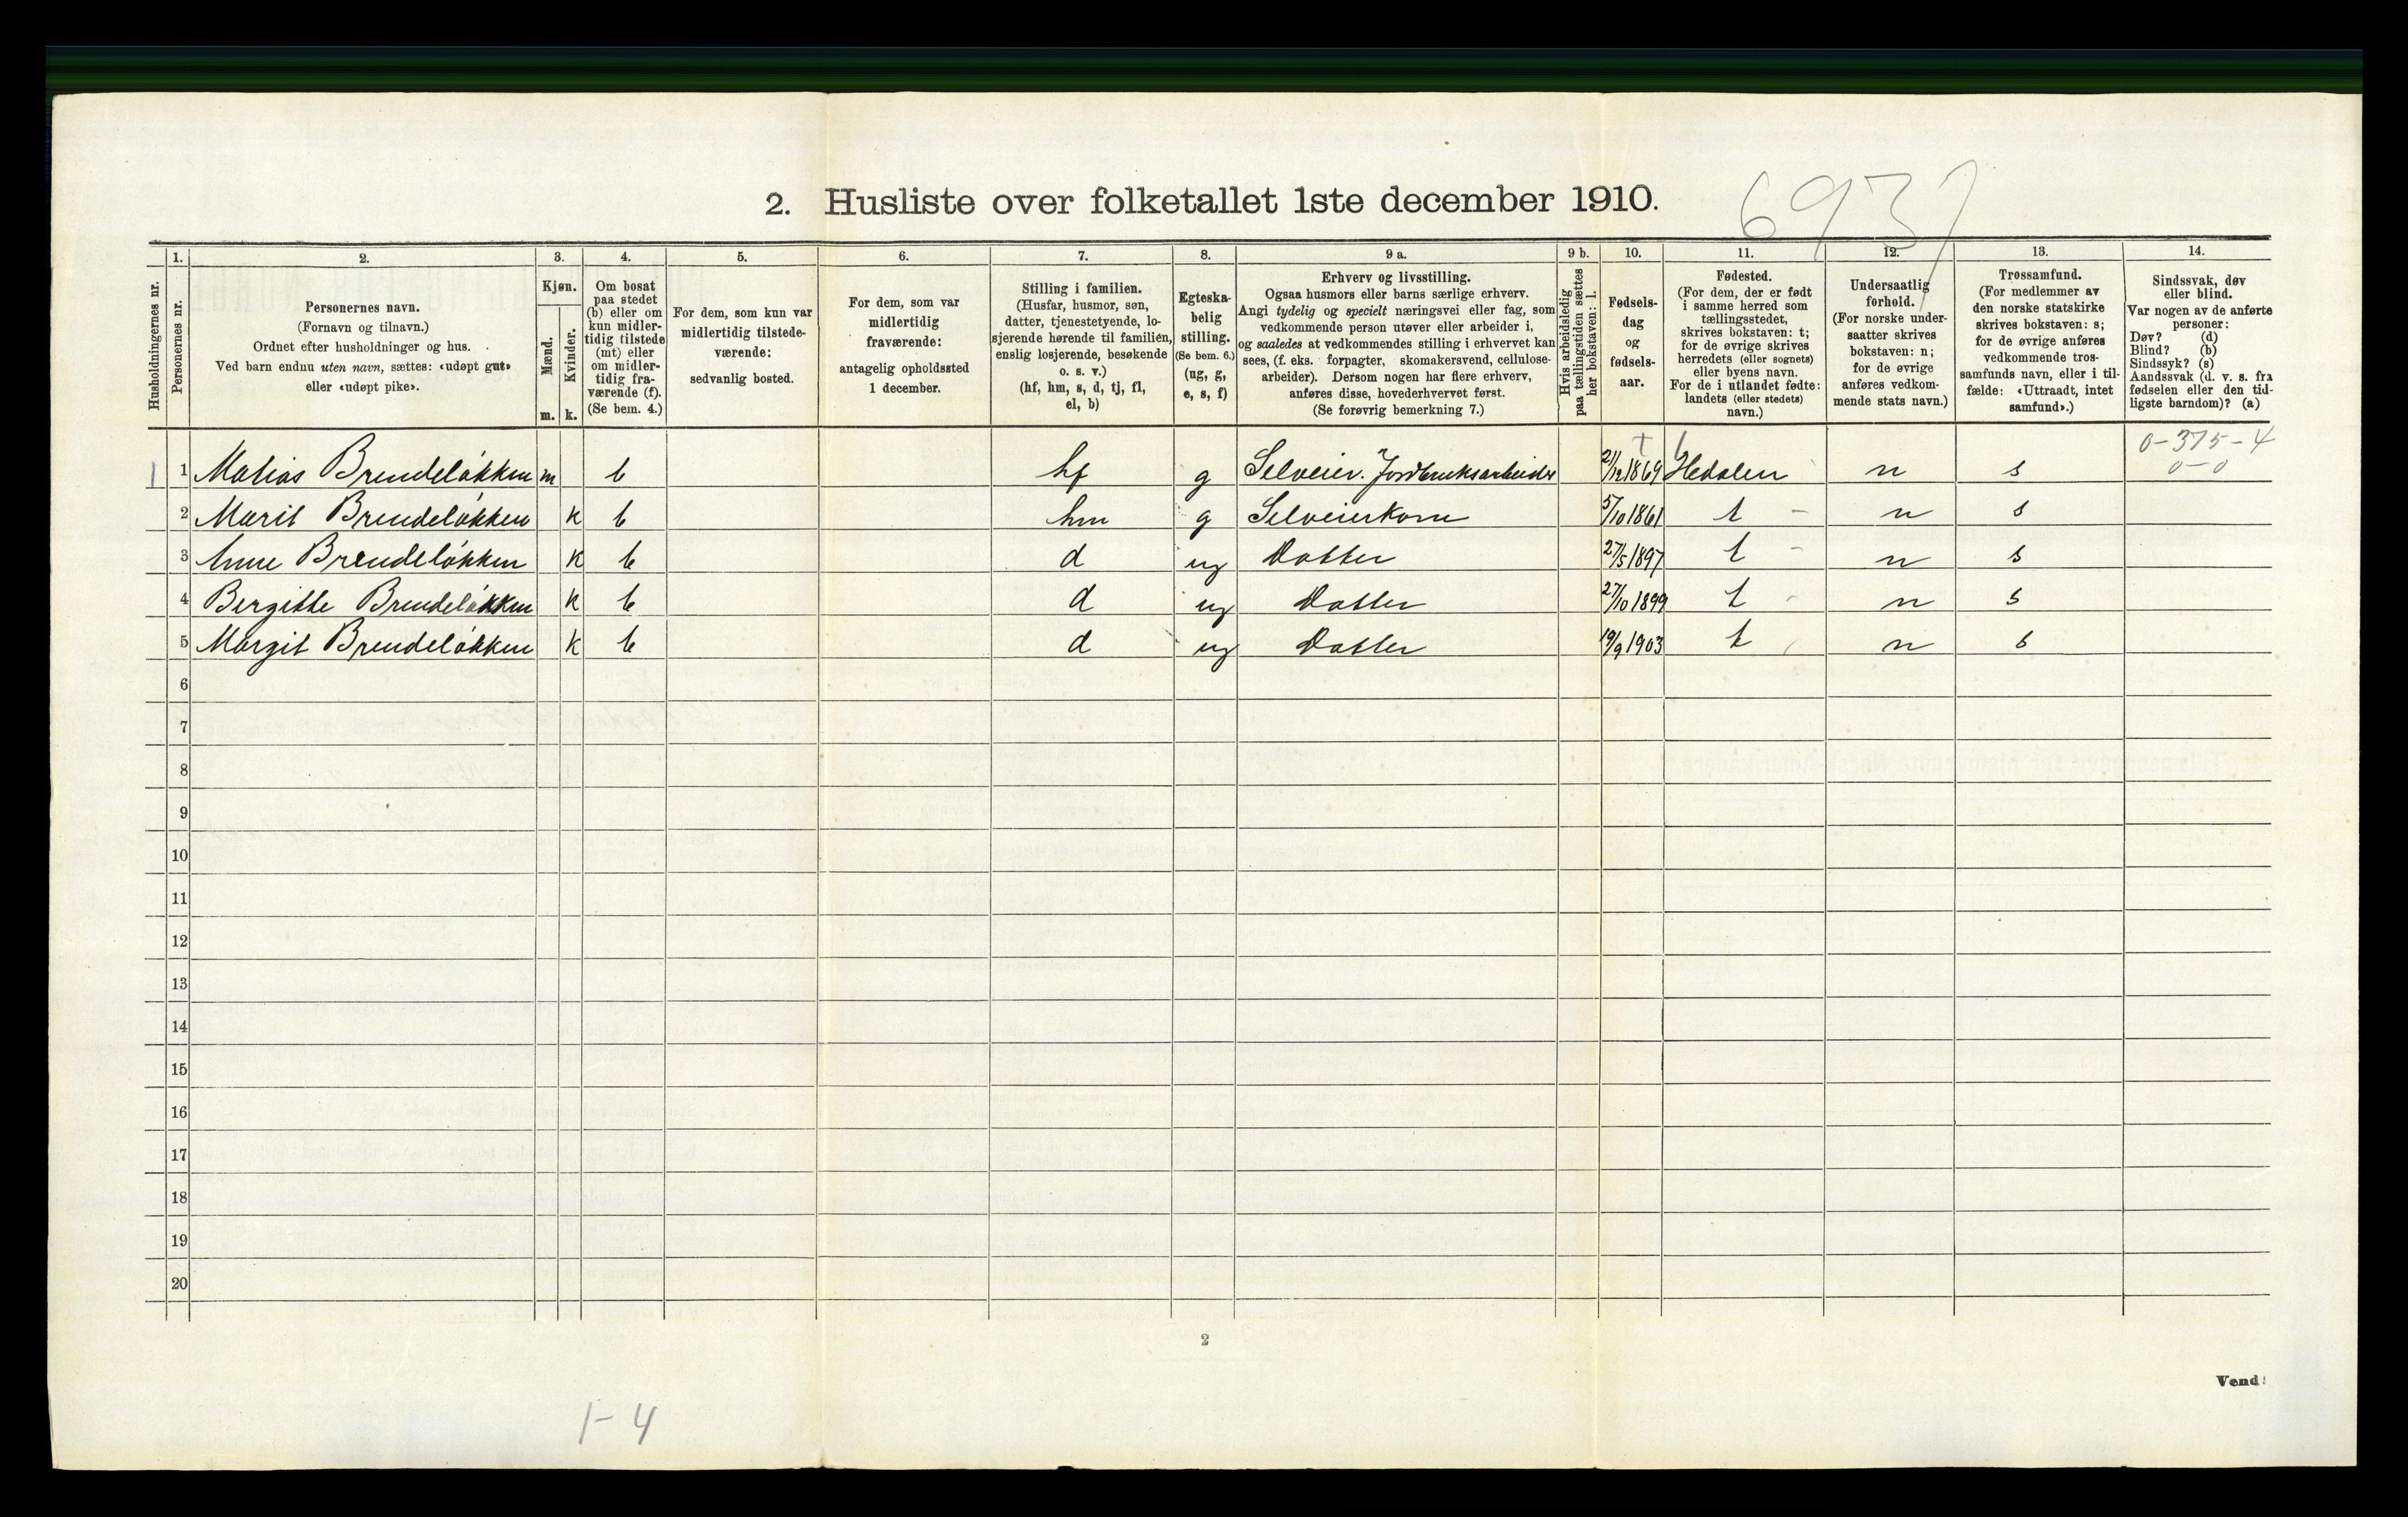 6937
2. Husliste over folketallet 1ste december 1910.
Husholdningernes nr.
1.
Personernes nr.
2.
Personernes navn.
(Fornavn og tilnavn.)
Ordnet efter husholdninger og hus.
Ved barn endnu uten navn, sættes: «udøpt gut»
eller «udøpt pike».
3.
Kjøn.
Mænd.
m.
Kvinder.
k.
4.
Om bosat
paa stedet
(b) eller om
kun midler-
tidig tilstede
(mt) eller
om midler-
tidig fra-
værende (f).
(Se bem. 4.)
5.
For dem, som kun var
midlertidig tilstede-
værende:
sedvanlig bosted.
6.
For dem, som var
midlertidig
fraværende:
antagelig opholdssted
1 december.
7.
Stilling i familien.
(Husfar, husmor, søn,
datter, tjenestetyende, lo-
sjerende hørende til familien,
enslig losjerende, besøkende
o. s. v.)
(hf, hm, s, d, tj, fl,
el, b)
8.
Egteska-
belig
stilling.
(Se bem. 6.)
(ug, g,
e, s, f)
9 a.
Erhverv og livsstilling.
Ogsaa husmors eller barns særlige erhverv.
Angi tydelig og specielt næringsvei eller fag, som
vedkommende person utøver eller arbeider i,
og saaledes at vedkommendes stilling i erhvervet kan
sees, (f. eks. forpagter, skomakersvend, cellulose-
arbeider). Dersom nogen har flere erhverv,
anføres disse, hovederhvervet først.
(Se forøvrig bemerkning 7.)
9 b.
Hvis arbeidsledig
paa tællingstiden sættes
her bokstaven: l.
10.
Fødsels-
dag
og
fødsels-
aar.
11.
Fødested.
(For dem, der er født
i samme herred som
tællingsstedet,
skrives bokstaven: t;
for de øvrige skrives
herredets (eller sognets)
eller byens navn.
For de i utlandet fødte:
landets (eller stedets)
navn.)
12.
Undersaatlig
forhold.
(For norske under-
saatter skrives
bokstaven: n;
for de øvrige
anføres vedkom-
mende stats navn.)
13.
Trossamfund.
(For medlemmer av
den norske statskirke
skrives bokstaven: s;
for de øvrige anføres
vedkommende tros-
samfunds navn, eller i til-
fælde: «Uttraadt, intet
samfund».)
14.
Sindssvak, døv
eller blind.
Var nogen av de anførte
personer:
Døv? (d)
Blind? (b)
Sindssyk? (s)
Aandssvak (d. v. s. fra
fødselen eller den tid-
ligste barndom)? (a)
0-375-4
0-0
1 1 Matias Brendeløkken m b hf g Selveier. Jordbruksarbeider 21/12 1869 Hedalen n s
2 Marit Brendeløkken k b hm g Selveierkone 5/10 1861 t - n s
3 Anne Brendeløkken k b d ug Datter 27/5 1897 t - n s
4 Bergitte Brendeløkken k b d ug Datter 27/10 1899 t - n s
5 Margit Brendeløkken k b d ug Datter 19/9 1903 t n s
6
7
8
9
10
11
12
13
14
15
16
17
18
19
20
2
Vend!
1-4